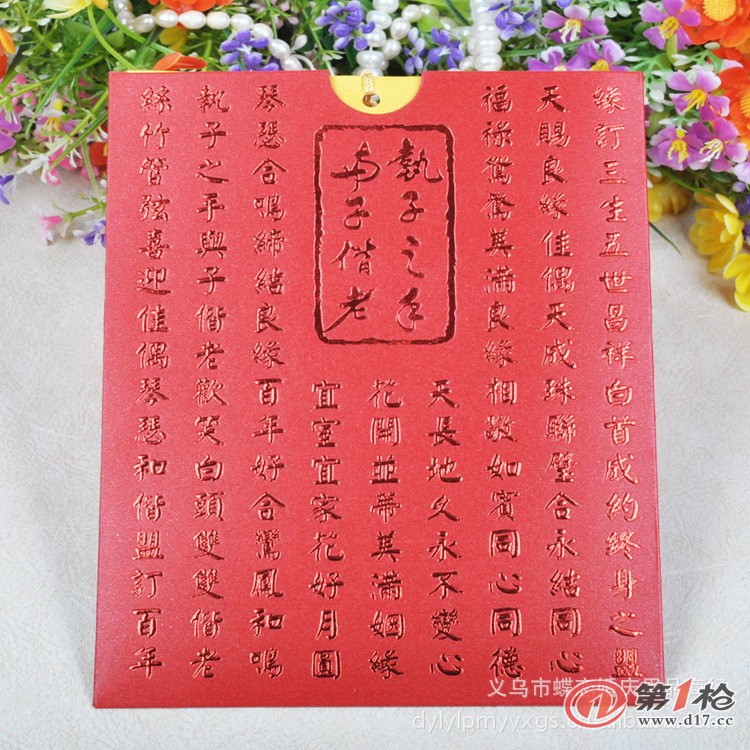 緣訂三生五世昌祥白首成約終身之盟
天賜良緣佳偶天成珠聯璧合永結同心
福祿鴛鴦美滿良緣相敬如賓同心同德
執子之手
与子偕老
天長地久永不變心
花開並蒂美滿姻緣
宜室宜家花好月圓
琴瑟合鳴締結良緣百年好合鸞鳳和鳴
執子之手與子偕老歡笑白頭雙雙偕老
絲竹管弦喜迎佳偶琴瑟和偕盟訂百年
义乌市蝶
dylylpmyyxgs
第1枪
www.d17.cc